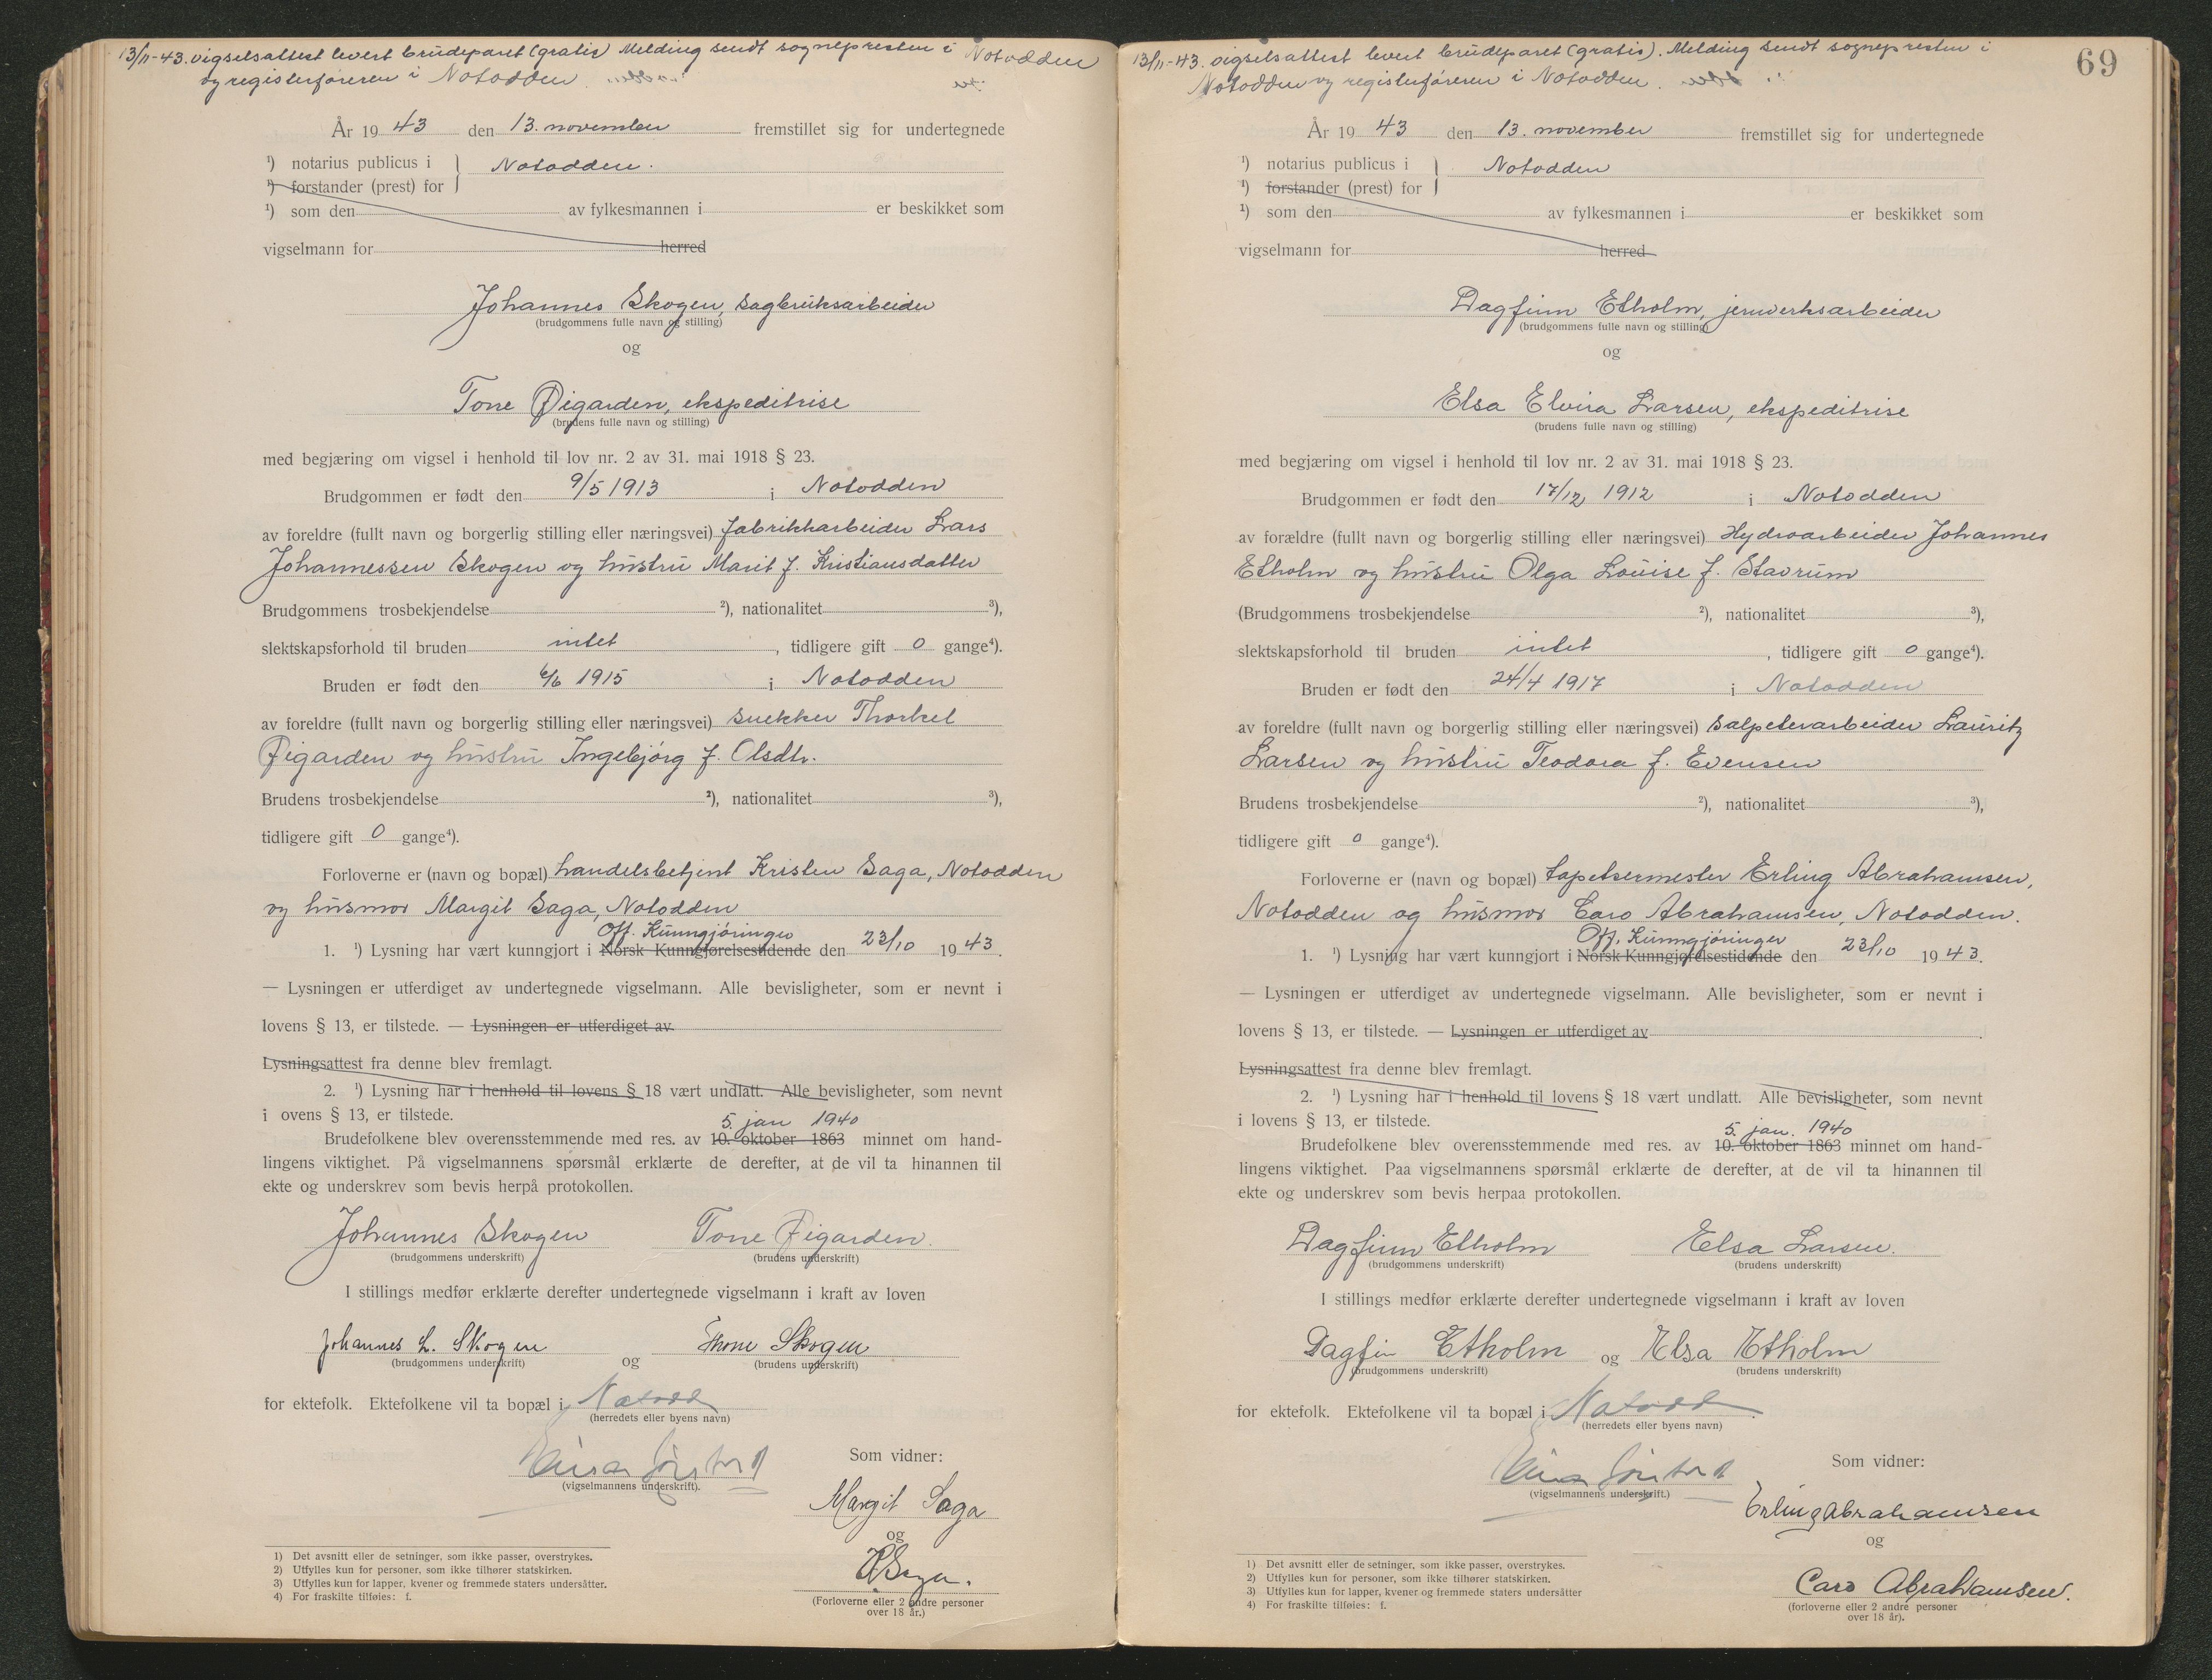 13/11-43. vigselsattest levert brudeparet (gratis) Melding sendt sognepresten i Notodden
og registerføreren i Notodden.
År 19 43 den 13. november fremstillet sig for undertegnede
¹) notarius publicus i } Notodden.
¹) forstander (prest) for
¹) som den av fylkesmannen i er beskikket som
vigselmann for herred
Johannes Skogen, sagbruksarbeider
(brudgommens fulle navn og stilling)
og
Tone Øigarden, ekspeditrise
(brudens fulle navn og stilling)
med begjæring om vigsel i henhold til lov nr. 2 av 31. mai 1918 § 23.
Brudgommen er født den 9/5 1913 i Notodden
av foreldre (fullt navn og borgerlig stilling eller næringsvei) fabrikkarbeider Lars
Johannessen Skogen og hustru Marit f. Kristiansdatter
Brudgommens trosbekjendelse ²), nationalitet ³),
slektskapsforhold til bruden intet, tidligere gift 0 gange⁴).
Bruden er født den 6/6 1915 i Notodden
av foreldre (fullt navn og borgerlig stilling eller næringsvei) snekker Thorkel
Øigarden og hustru Ingebjørg f. Olsdtr.
Brudens trosbekjendelse ²), nationalitet ³),
tidligere gift 0 gange⁴).
Forloverne er (navn og bopæl) handelsbetjent Kristen Saga, Notodden
og husmor Margit Saga, Notodden
Off. Kunngjøringer
1. ¹) Lysning har vært kunngjort i Norsk Kunngjørelsestidende den 23/10 1943.
— Lysningen er utferdiget av undertegnede vigselmann. Alle bevisligheter, som er nevnt i
lovens § 13, er tilstede. — Lysningen er utferdiget av
Lysningsattest fra denne blev fremlagt.
2. ¹) Lysning har i henhold til lovens § 18 vært undlatt. Alle bevisligheter, som nevnt
i ovens § 13, er tilstede.
5. jan 1940
Brudefolkene blev overensstemmende med res. av 10. oktober 1863 minnet om hand-
lingens viktighet. På vigselmannens spørsmål erklærte de derefter, at de vil ta hinannen til
ekte og underskrev som bevis herpå protokollen.
Johannes Skogen Tone Øigarden.
(brudgommens underskrift) (brudens underskrift)
I stillings medfør erklærte derefter undertegnede vigselmann i kraft av loven
Johannes L. Skogen og Thone Skogen
(brudgommens underskrift) (brudens underskrift)
for ektefolk. Ektefolkene vil ta bopæl i Notodd
(herredets eller byens navn)
(vigselmannens underskrift).
Som vidner:
Margit Saga
og
K Saga.
(Forloverne eller 2 andre personer
over 18 år.)
1) Det avsnitt eller de setninger, som ikke passer, overstrykes.
2) Utfylles kun for personer, som ikke tilhører statskirken.
3) Utfylles kun for lapper, kvener og fremmede staters undersåtter.
4) For fraskilte tilføies: f.
69
13/11-43. vigselsattest levert brudeparet (gratis). Melding sendt sognepresten i
Notodden og registerføreren i Notodden.
År 19 43 den 13. november fremstillet sig for undertegnede
¹) notarius publicus i } Notodden
¹) forstander (prest) for
¹) som den av fylkesmannen i er beskikket som
vigselmann for herred
Dagfinn Etholm, jernverksarbeider
(brudgommens fulle navn og stilling)
og
Elsa Elvira Larsen, ekspeditrise
(brudens fulle navn og stilling)
med begjæring om vigsel i henhold til lov nr. 2 av 31. mai 1918 § 23.
Brudgommen er født den 17/12 1912 i Notodden
av forældre (fullt navn og borgerlig stilling eller næringsvei) Hydroarbeider Johannes
Etholm og hustru Olga Louise f. Stavrum
(Brudgommens trosbekjendelse ²), nationalitet ³),
slektskapsforhold til bruden intet, tidligere gift 0 gange⁴).
Bruden er født den 24/4 1917 i Notodden
av foreldre (fullt navn og borgerlig stilling eller næringsvei) salpeterarbeider Lauritz
Larsen og hustru Teodora f. Evensen
Brudens trosbekjendelse ²), nationalitet ³),
tidligere gift 0 gange⁴).
Forloverne er (navn og bopæl) tapetsermester Erling Abrahamsen,
Notodden og husmor Caro Abrahamsen, Notodden.
Off. Kunngjøringer
1. ¹) Lysning har vært kunngjort i Norsk Kunngjørelsestidende den 23/10 1943.
— Lysningen er utferdiget av undertegnede vigselmann. Alle bevisligheter, som er nevnt i
lovens § 13, er tilstede. — Lysningen er utferdiget av .
Lysningsattest fra denne blev fremlagt.
2. ¹) Lysning har i henhold til lovens § 18 vært undlatt. Alle bevisligheter, som nevnt
i lovens § 13, er tilstede.
5. jan. 1940
Brudefolkene blev overensstemmende med res. av 10. oktober 1863 minnet om hand-
lingens viktighet. Paa vigselmannens spørsmål erklærte de derefter, at de vil ta hinannen til
ekte og underskrev som bevis herpaa protokollen.
Dagfinn Etholm Elsa Larsen.
(brudgommens underskrift) (brudens underskrift)
I stillings medfør erklærte derefter undertegnede vigselmann i kraft av loven
Dagfin Etholm og Elsa Etholm
(brudgommens underskrift) (brudens underskrift)
for ektefolk. Ektefolkene vil ta bopæl i Notodd.
(herredets eller byens navn)
(vigselmannens underskrift.)
Som vidner:
Erling Abrahamsen
og
Caro Abrahamsen.
(forloverne eller 2 andre personer
over 18 år).
1) Det avsnitt eller de setninger, som ikke passer, overstrykes.
2) Utfylles kun for personer, som ikke tilhører statskirken.
3) Utfylles kun for lapper, kvener og fremmede staters undersåtter
4) For fraskilte tilføies: f.